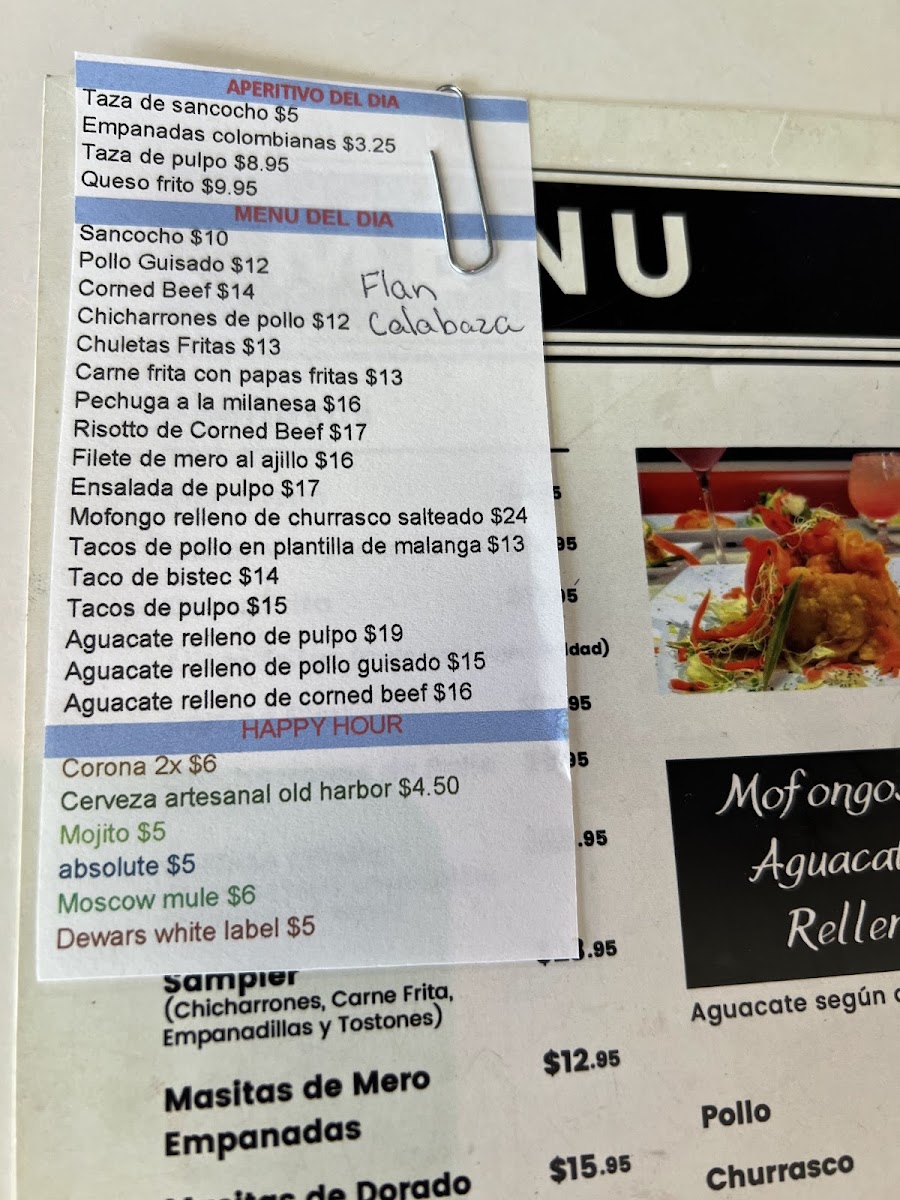 APERITIVO DEL DIA
Taza de sancocho $5
Empanadas colombianas $3.25
Taza de pulpo $8.95
Queso frito $9.95
MENU DEL DIA
Sancocho $10
Pollo Guisado $12
Corned Beef $14
Chicharrones de pollo $12
Chuletas Fritas $13
Carne frita con papas fritas $13
Pechuga a la milanesa $16
Risotto de Corned Beef $17
Filete de mero al ajillo $16
Ensalada de pulpo $17
Mofongo relleno de churrasco salteado $24
Tacos de pollo en plantilla de malanga $13
Taco de bistec $14
Tacos de pulpo $15
Aguacate relleno de pulpo $19
Aguacate relleno de pollo guisado $15
Aguacate relleno de corned beef $16
Flan
Calabaza
HAPPY HOUR
Corona 2x $6
Cerveza artesanal old harbor $4.50
Mojito $5
absolute $5
Moscow mule $6
Dewars white label $5
NU
5
95
95
dad)
95
95
.95
.95
Sampler
(Chicharrones, Carne Frita,
Empanadillas y Tostones)
Masitas de Mero $12.95
Empanadas
de Dorado $15.95
Mofongo
Aguaca
Reller
Aguacate según
Pollo
Churrasco